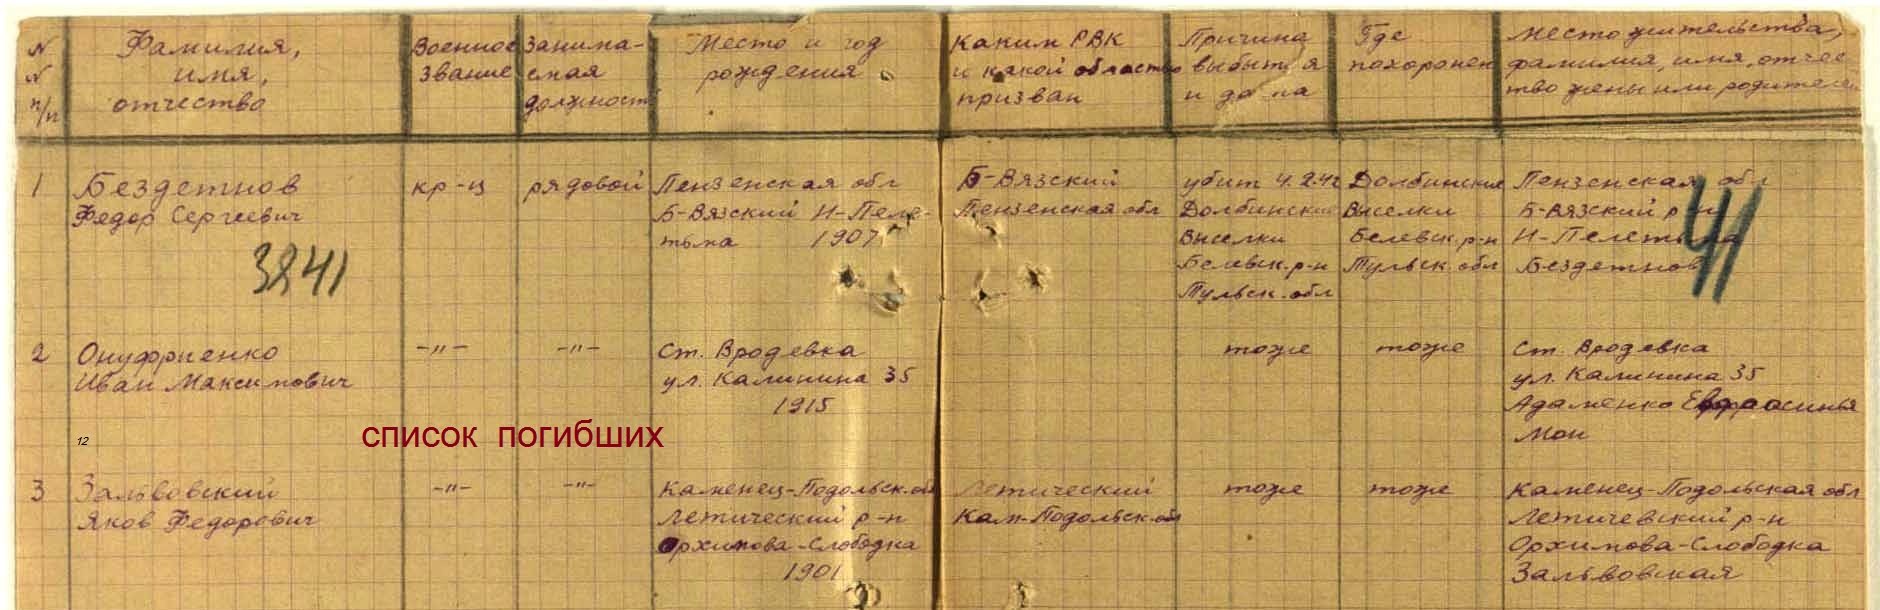 N
N
п/п
Фамилия,
имя,
отчество
Военное
звание
Занима-
емая
должност
Место и год
рождения
Каким РВК
и какой областью
призван
Причина
выбытия
и дата
Где
похоронен
Место жительства,
фамилия, имя, отчес
тво жены или родителей
1
Бездетнов
Федор Сергеевич
3241
кр-ц
рядовой
Пензенская обл
Б-Вязский Н-Пеле-
тьма 1907
Б-Вязский
Пензенская обл
убит 4.2.42
Долбинские
Выселки
Белевск.р-н
Тульск.обл
Долбинские
Выселки
Белевск.р-н
Тульск.обл
Пензенская обл
Б-Вязский р-н
Н-Пелетьма
Бездетнов
41
2
Онуфриенко
Иван Максимович
-"-
-"-
Ст. Вродевка
ул. Калинина 35
1915
тоже
тоже
Ст. Вродевка
ул. Калинина 35
Адаменко Ефросинья
Мои
12
список погибших
3
Зальвовский
Яков Федорович
-"-
-"-
Каменец-Подольск.обл
Летический р-н
Орхипова-Слободка
1901
Летический
Кам-Подольск.обл
тоже
тоже
Каменец-Подольская обл
Летичевский р-н
Орхипова-Слободка
Зальвовская